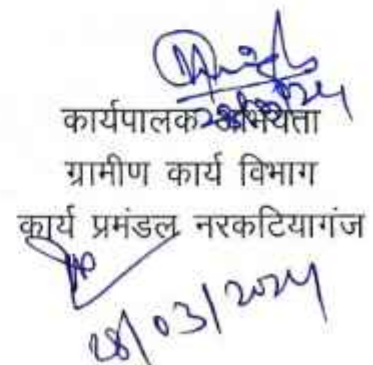 28/03/2024
कार्यपालक अभियंता
ग्रामीण कार्य विभाग
कार्य प्रमंडल नरकटियागंज
28/03/2024